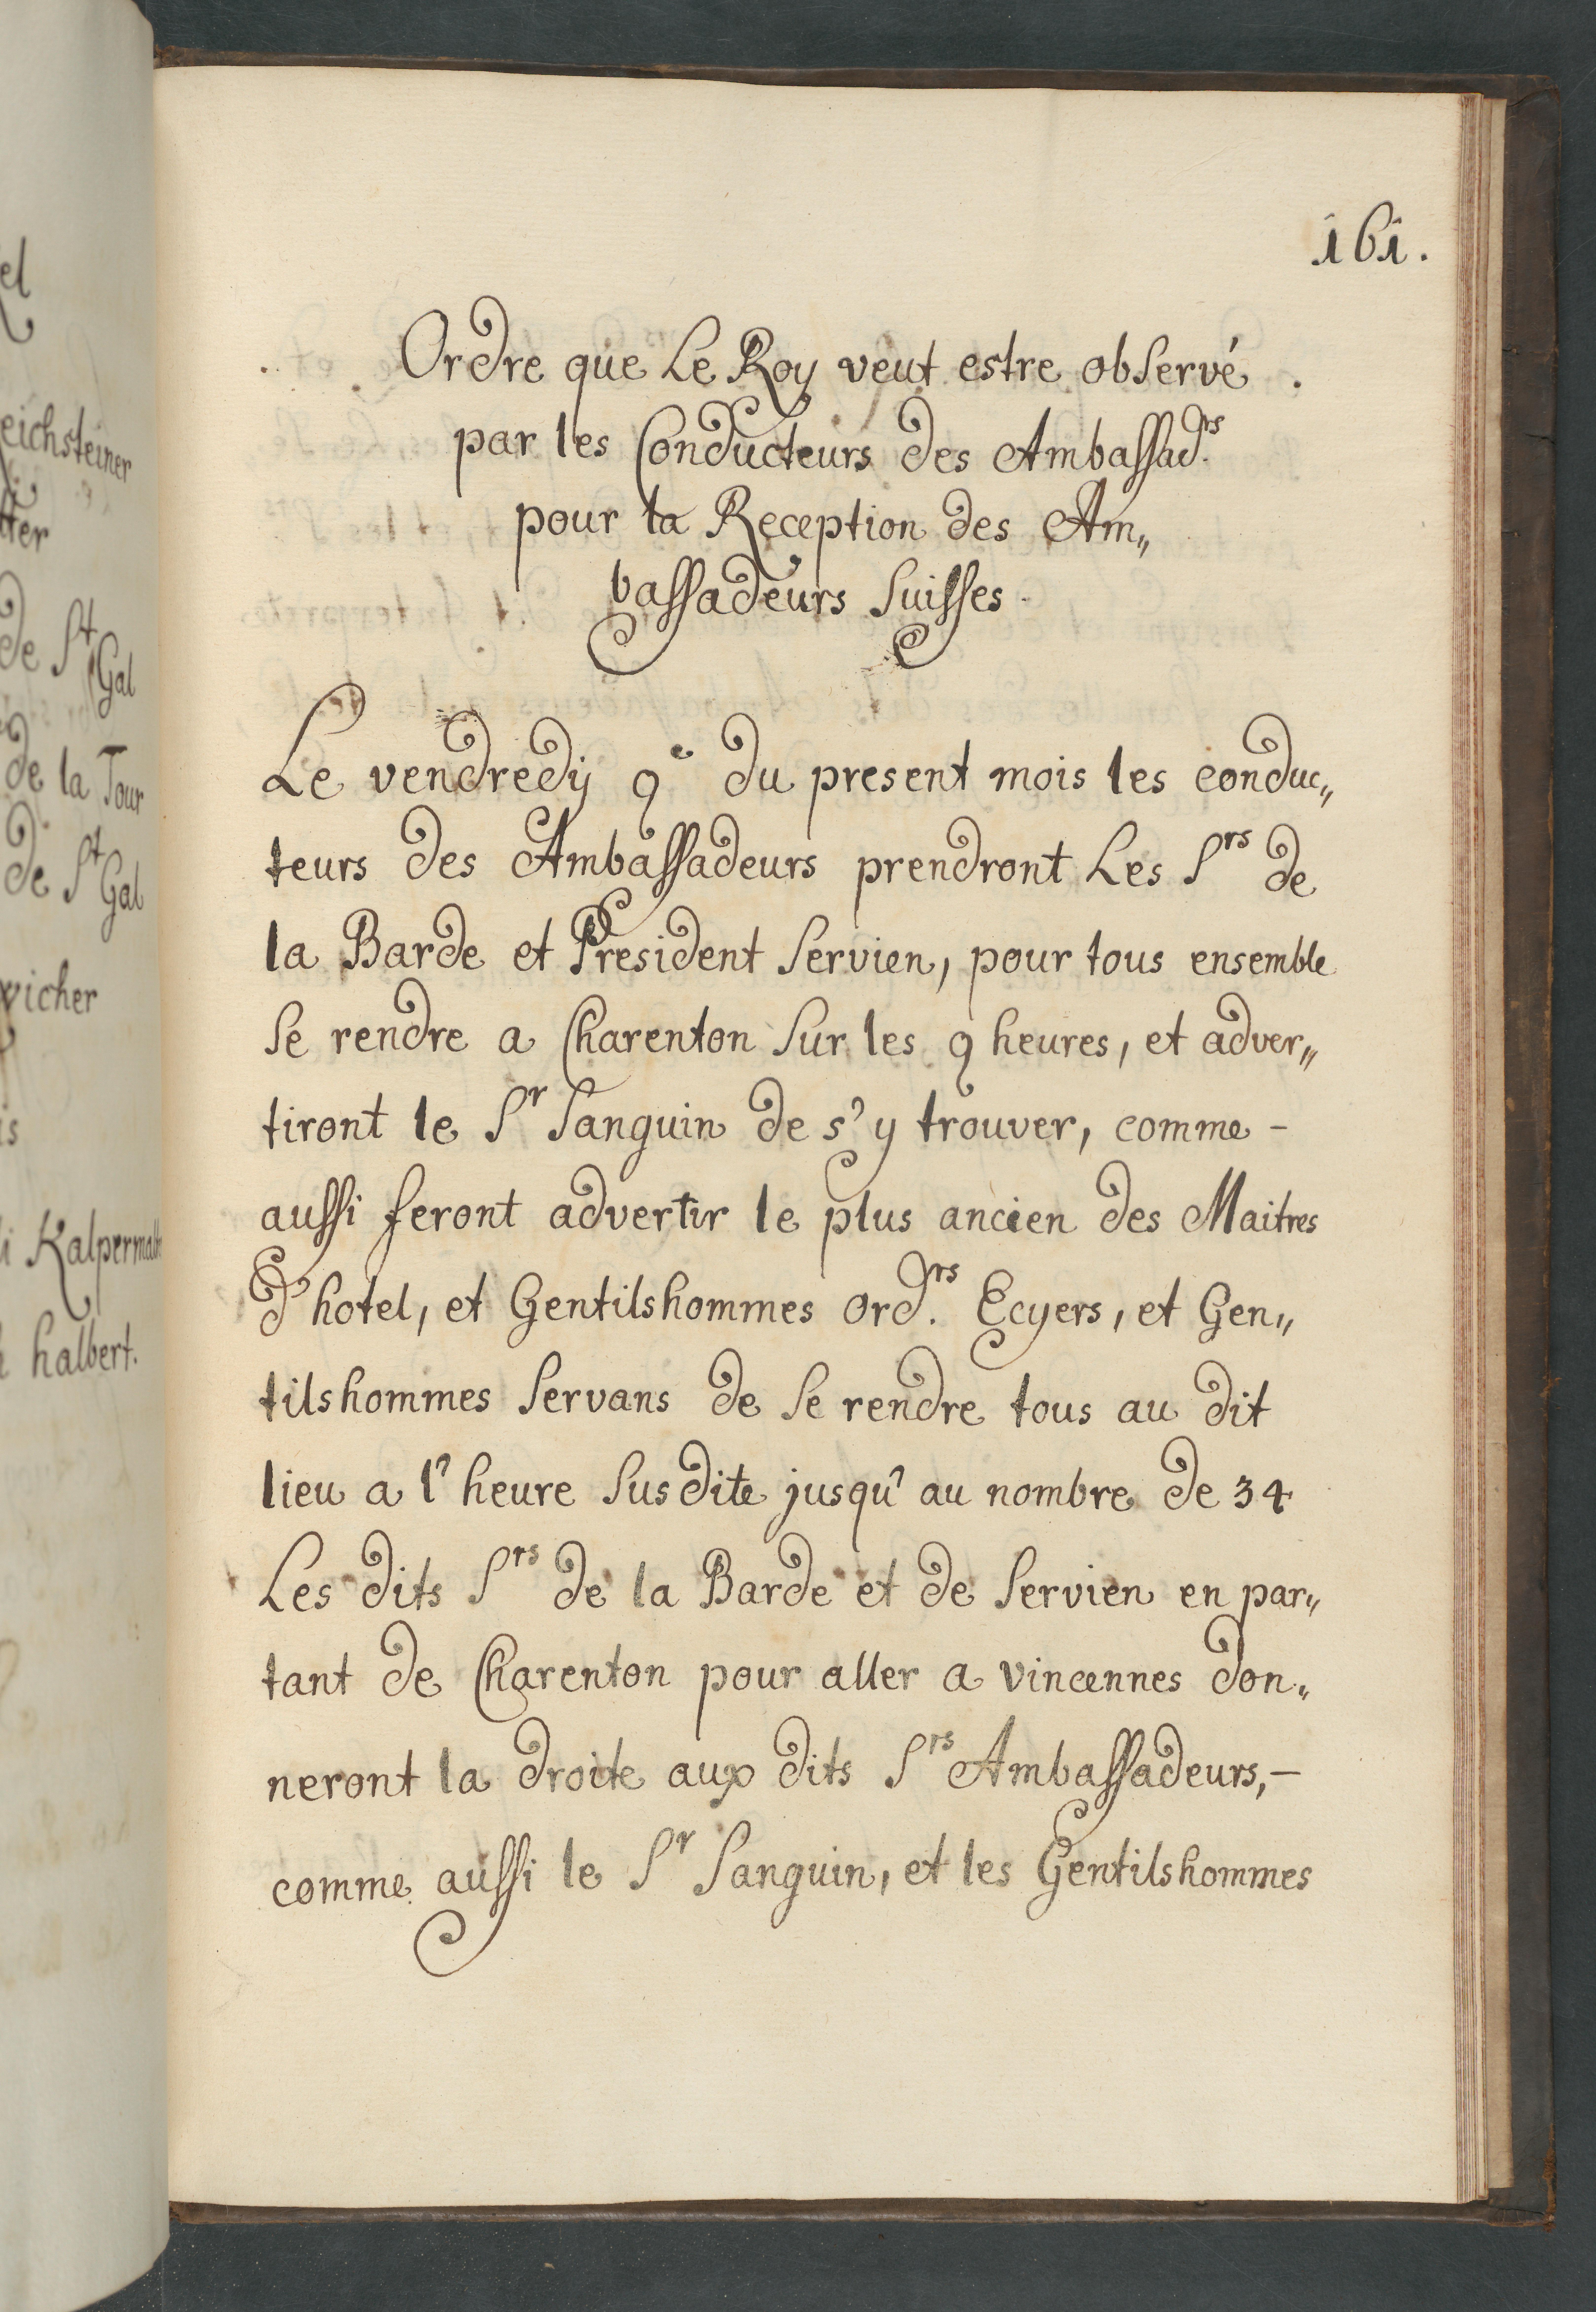 161.
Ordre que Le Roy veut estre observé
par les Conducteurs des Ambassad.rs
pour la Reception des Am„
bassadeurs Suisses
Le vendredij 9e du present mois les conduc„
teurs des Ambassadeurs prendront Les Srs de
la Barde et President Servien, pour tous ensemble
se rendre a Charenton sur les 9 heures, et adver„
tiront le Sr Sanguin de s'y trouver, comme -
aussi feront advertir le plus ancien des Maitres
d'hotel, et Gentilshommes ord.rs Ecyers, et Gen„
tilshommes servans de se rendre tous au dit
lieu a l'heure susdite jusqu'au nombre de 34
Les dits Srs de la Barde et de Servien en par„
tant de Charenton pour aller a vincennes don„
neront la droite aux dits Srs Ambassadeurs, -
comme aussi le Sr Sanguin, et les Gentilshommes
el
eichsteiner
tter
de St Gal
de la Tour
de St Gal
vicher
is
halbert.